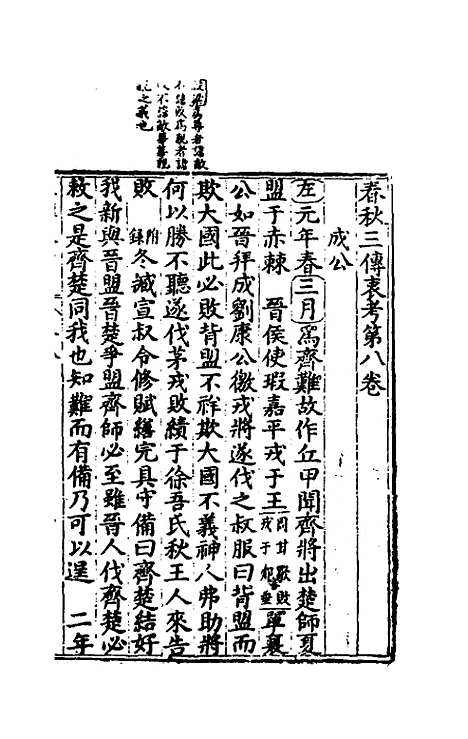 爲尊者諱敵
不諱敗爲親者諱
不諱敵尊尊親
之義也
春秋三傳衷考第八卷
成公
左元年春三月爲齊難故作丘甲聞齊將出楚師夏
盟于赤棘　晉侯使瑕嘉平戎于王周甘歜敗戎于邥垂單襄
公如晉拜成劉康公徼戎將遂伐之叔服曰背盟而
欺大國此必敗背盟不祥欺大國不義神人弗助將
何以勝不聽遂伐茅戎敗績于徐吾氏秋王人來告
敗　附錄冬臧宣叔令修賦繕完具守備曰齊楚結好
我新與晉盟晉楚爭盟齊師必至雖晉人伐齊楚必
救之是齊楚同我也知難而有備乃可以逞　二年